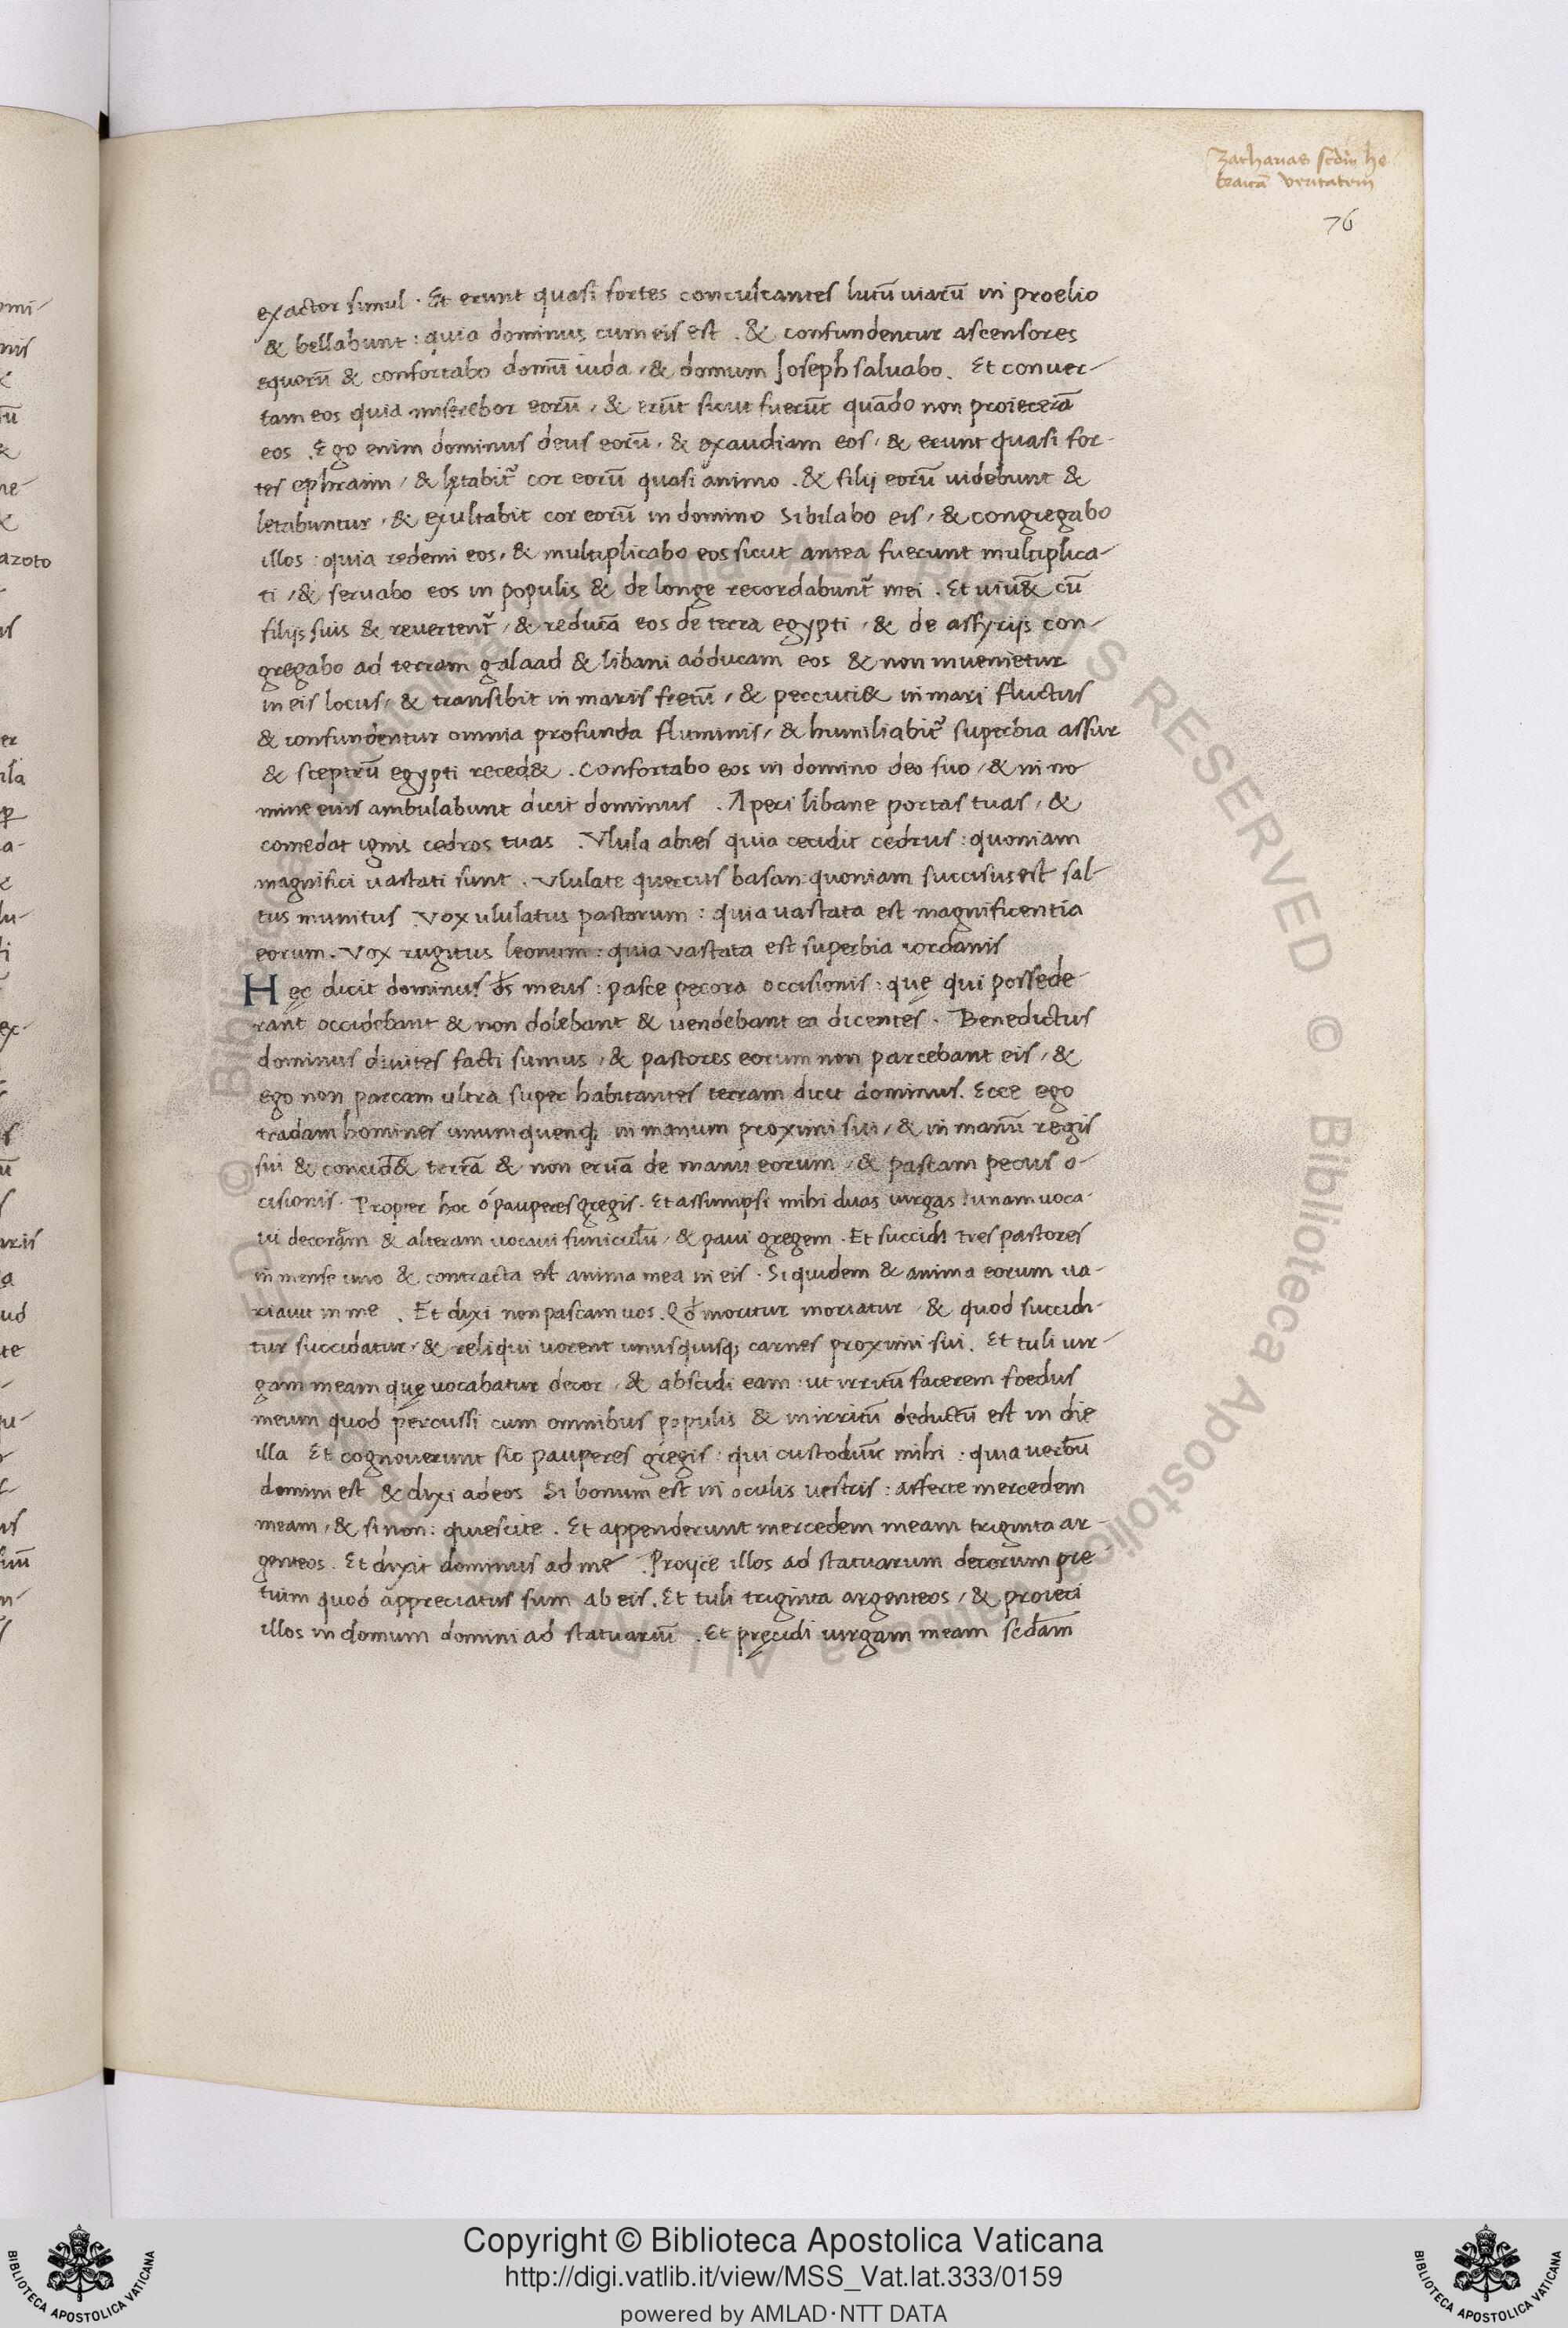 Zacharias scdm̄ he
braicā veritatem
76
exactor simul · Et erunt quasi fortes conculcantes lutū uiarū in proelio
& bellabunt : quia dominus cum eis est . & confundentur ascensores
equorū & confortabo domū iuda , & domum Joseph saluabo . Et conuer-
tam eos quia miserebor eorū , & erūt sicut fuerūt quādo non proiecerā
eos . Ego enim dominus deus eorū , & exaudiam eos , & erunt quasi for-
tes ephraim , & lętabit᷑ cor eorū quasi a uino . & filij eorū uidebunt &
letabuntur , & exultabit cor eorū in domino Sibilabo eis , & congregabo
illos : quia redemi eos , & multiplicabo eos sicut antea fuerunt multiplica-
ti , & seruabo eos in populis & de longe recordabunt᷑ mei . Et uiu&̄ cū
filijs suis & revertent᷑ , & reducā eos de terra egypti , & de assyrijs con-
gregabo ad terram galaad & libani adducam eos & non inuenietur
in eis locus , & transibit in maris fretū , & percuti& in mari fluctus
& confundentur omnia profunda fluminis , & humiliabit᷑ superbia assur
& sceptrū egypti reced& . Confortabo eos in domino deo suo , & in no-
mine eius ambulabunt dicit dominus . Aperi libane portas tuas , &
comedat ignis cedros tuas . Vlula abies quia cecidit cedrus : quoniam
magnifici uastati sunt . Vlulate quercus basan quoniam succisus est sal-
tus munitus . Vox ululatus pastorum : quia uastata est magnificentia
eorum . Vox rugitus leonum : quia vastata est superbia iordanis
Hęc dicit dominus d̄s meus : pasce pecora occisionis : quę qui possede-
rant occidebant & non dolebant & uendebant ea dicentes . Benedictus
dominus diuites facti sumus , & pastores eorum non parcebant eis , &
ego non parcam ultra super habitantes terram dicit dominus . Ecce ego
tradam homines unumquenq; in manum proximi sui , & in manū regis
sui & concid&̄ terrā & non eruā de manu eorum , & pascam pecus o-
cisionis · Propter hoc o pauperes gregis . Et assumpsi mihi duas uirgas : unam uoca-
ui decoram & alteram uocaui funiculū , & paui gregem . Et succidi tres pastores
in mense uno & contracta est anima mea in eis · Siquidem & anima eorum ua-
riauit in me . Et dixi non pascam uos . Qd̄ moritur moriatur & quod succidi-
tur succidatur , & reliqui uorent unusquisq; carnes proximi sui . Et tuli uir-
gam meam quę vocabatur decor , & abscidi eam : ut irritū facerem foedus
meum quod percussi cum omnibus populis & in irritū deductū est in die
illa Et cognouerunt sic pauperes gregis : qui custodiūt mihi : quia uerbū
domini est & dixi ad eos Si bonum est in oculis uestris : afferte mercedem
meam , & si non : quiescite . Et appenderunt mercedem meam triginta ar-
genteos . Et dixit dominus ad me . Proijce illos ad statuarum decorum pre-
tium quod appreciatus sum ab eis . Et tuli triginta argenteos , & proieci
illos in domum domini ad statuariū . Et pręcidi uirgam meam scd̄am
Copyright © Biblioteca Apostolica Vaticana
http://digi.vatlib.it/view/MSS_Vat.lat.333/0159
powered by AMLAD·NTT DATA